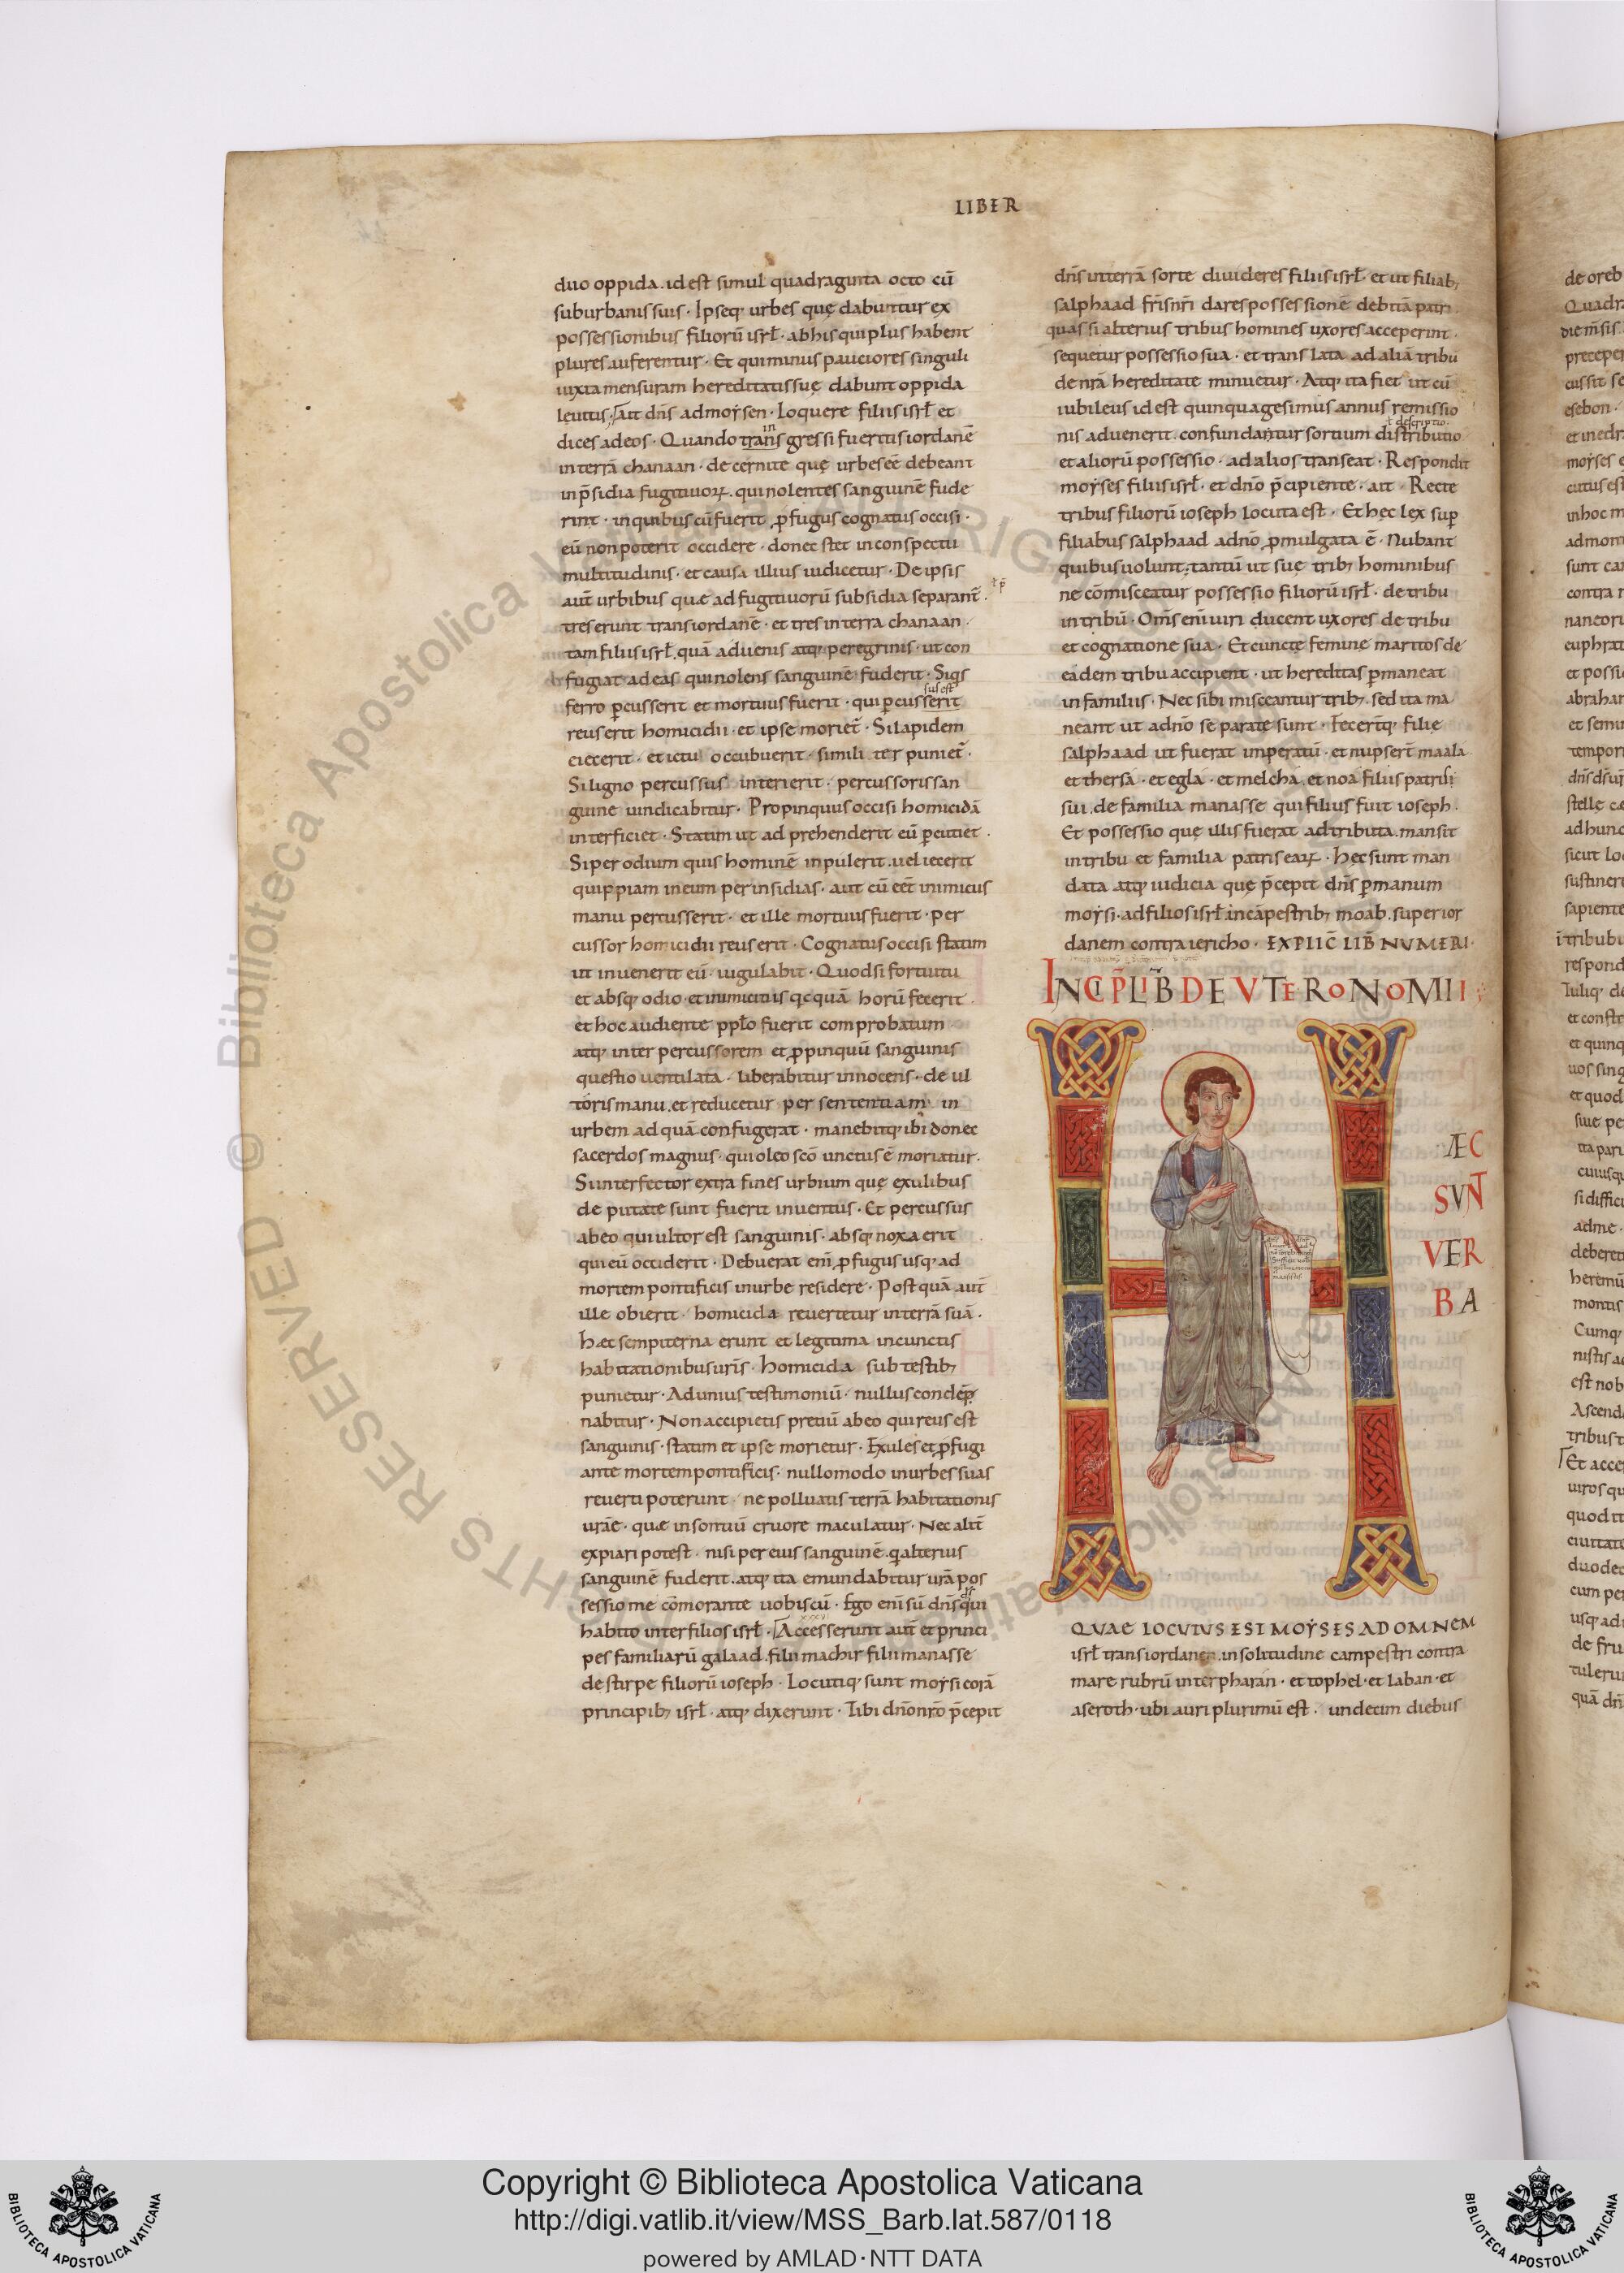 LIBER
duo oppida. id est simul quadraginta octo cū
suburbanis suis. Ipseq; urbes quę dabuntur ex
possessionibus filiorū isrł. ab his qui plus habent
plures auferentur. Et qui minus pauciores singuli
iuxta mensuram hereditatis suę dabunt oppida
leuitis. Ait dn̄s ad moẏsen. Loquere filiis isrł et
dices ad eos. Quando transgressi fueritis iordanē
in
in terrā chanaan. decernite quę urbes eē debeant
in p̄sidia fugitiuoꝝ. qui nolentes sanguinē fude
rint. in quibus cū fuerit ꝓfugus cognatus occisi.
eū non poterit occidere. donec stet in conspectu
multitudinis. et causa illius iudicetur. De ipsis
aut̄ urbibus quae ad fugitiuorū subsidia separant̄.
tres erunt trans iordanē. et tres in terra chanaan.
tam filiis isrł. quā aduenis atq; peregrinis. ut con
fugiat ad eas qui nolens sanguinē fuderit. Siqs
ferro ꝑcusserit et mortuus fuerit. qui ꝑcusserit
sus est
reus erit homicidii. et ipse moriet̄. Si lapidem
eiecerit. et ictu occubuerit. similiter puniet̄.
Si ligno percussus interierit. percussoris san
guine uindicabitur. Propinquus occisi homicidā
interficiet. Statim ut adprehenderit eū ꝑcutiet.
Si per odium quis hominē inpulerit. uel iecerit
quippiam in eum per insidias. aut cū eēt inimicus
manu percusserit. et ille mortuus fuerit. per
cussor homicidii reus erit. Cognatus occisi statim
ut inuenerit eū. iugulabit. Quod si fortuitu
et absq; odio. et inimicitiis qcquā horū fecerit.
et hoc audiente ppło fuerit comprobatum
atq; inter percussorem et ꝓpinquū sanguinis
questio uentilata. liberabitur innocens. de ul
toris manu. et reducetur per sententiam in
urbem ad quā confugerat. manebitq; ibi donec
sacerdos magnus. qui oleo sc̄o unctus ē moriatur.
Si interfector extra fines urbium quę exulibus
deputatę sunt fuerit inuentus. Et percussus
ab eo qui ultor est sanguinis. absq; noxa erit
qui eū occiderit. Debuerat eni ꝓfugus usq; ad
mortem pontificis in urbe residere. Postquā aut̄
ille obierit. homicida reuertetur in terrā suā.
Haec sempiterna erunt et legitima in cunctis
habitationibus ur̄is. Homicida sub testib;
punietur. Ad unius testimoniū. nullus condēp
nabitur. Non accipietis pretiū ab eo qui reus est
sanguinis. statim et ipse morietur. Exules et ꝓfugi
ante mortem pontificis. nullomodo in urbes suas
reuerti poterunt ne polluatis terrā habitationis
urāe. quae insontiū cruore maculatur. Nec alit̄
expiari potest. nisi per eius sanguinē. q alterius
sanguinē fuderit. atq; ita emundabitur urā pos
sessio me cōmorante uobiscū. Ego eni sū dn̄s qui
habito inter filios isrł. Accesserunt aut̄ et princi
pes familiarū galaad. filii machir filii manasse
de stirpe filiorū ioseph. Locutiq; sunt moẏsi corā
principib; isrł. atq; dixerunt. Tibi dn̄o nr̄o p̄cepit
dn̄s ut terrā sorte diuideres filiis isrł. et ut filiab;
salphaad fr̄is nr̄i dares possessionē debitā patri.
quas si alterius tribus homines uxores acceperint.
sequetur possessio sua. et translata ad aliā tribū
de nr̄ā hereditate minuetur. Atq; ita fiet ut cū
iubileus id est quinquagesimus annus remissio
nis aduenerit. confundantur sortium distributio
ł descriptio.
et aliorū possessio. ad alios transeat. Respondit
moẏses filiis isrł. et dn̄o p̄cipiente. ait. Recte
tribus filiorū ioseph locuta est. Et hęc lex sup
filiabus salphaad a dn̄o ꝓmulgata ē. Nubant
quibus uolunt. tantū ut suę trib; hominibus
ne cōmisceatur possessio filiorū isrł. de tribu
in tribū. Om̄s eni uiri ducent uxores de tribu
et cognatione sua. Et cunctę feminę maritos de
eadem tribu accipient. ut hereditas ꝑmaneat
in familiis. Nec sibi misceantur trib;. sed ita ma
neant ut a dn̄o separatę sunt. Fecerītq; filię
salphaad ut fuerat imperatū. et nupsert̄ maala
et thersa. et egla. et melcha. et noa filiis patrui
sui. de familia manasse qui filius fuit ioseph.
Et possessio quę illis fuerat adtributa. mansit
in tribu et familia patris eaꝝ. Hęc sunt man
data atq; iudicia quę p̄cepit dn̄s ꝑ manum
moẏsi. ad filios isrł in cāpestrib; moab. super ior
danem contra iericho. EXPLIC̄ LIB̄ NVMERI.
INCIP̄ LIB̄ DEVTERONOMII
H
ÆC
SVNT
VER
BA
QVAE LOCVTVS EST MOẎSES AD OMNEM
isrł trans iordanen. in solitudine campestri contra
mare rubrū inter pharan. et tophel. et laban. et
aseroth. ubi auri plurimū est. undecim diebus
© Biblioteca Apostolica Vaticana
Copyright © Biblioteca Apostolica Vaticana
http://digi.vatlib.it/view/MSS_Barb.lat.587/0118
powered by AMLAD·NTT DATA
BIBLIOTECA APOSTOLICA VATICANA
BIBLIOTECA APOSTOLICA VATICANA